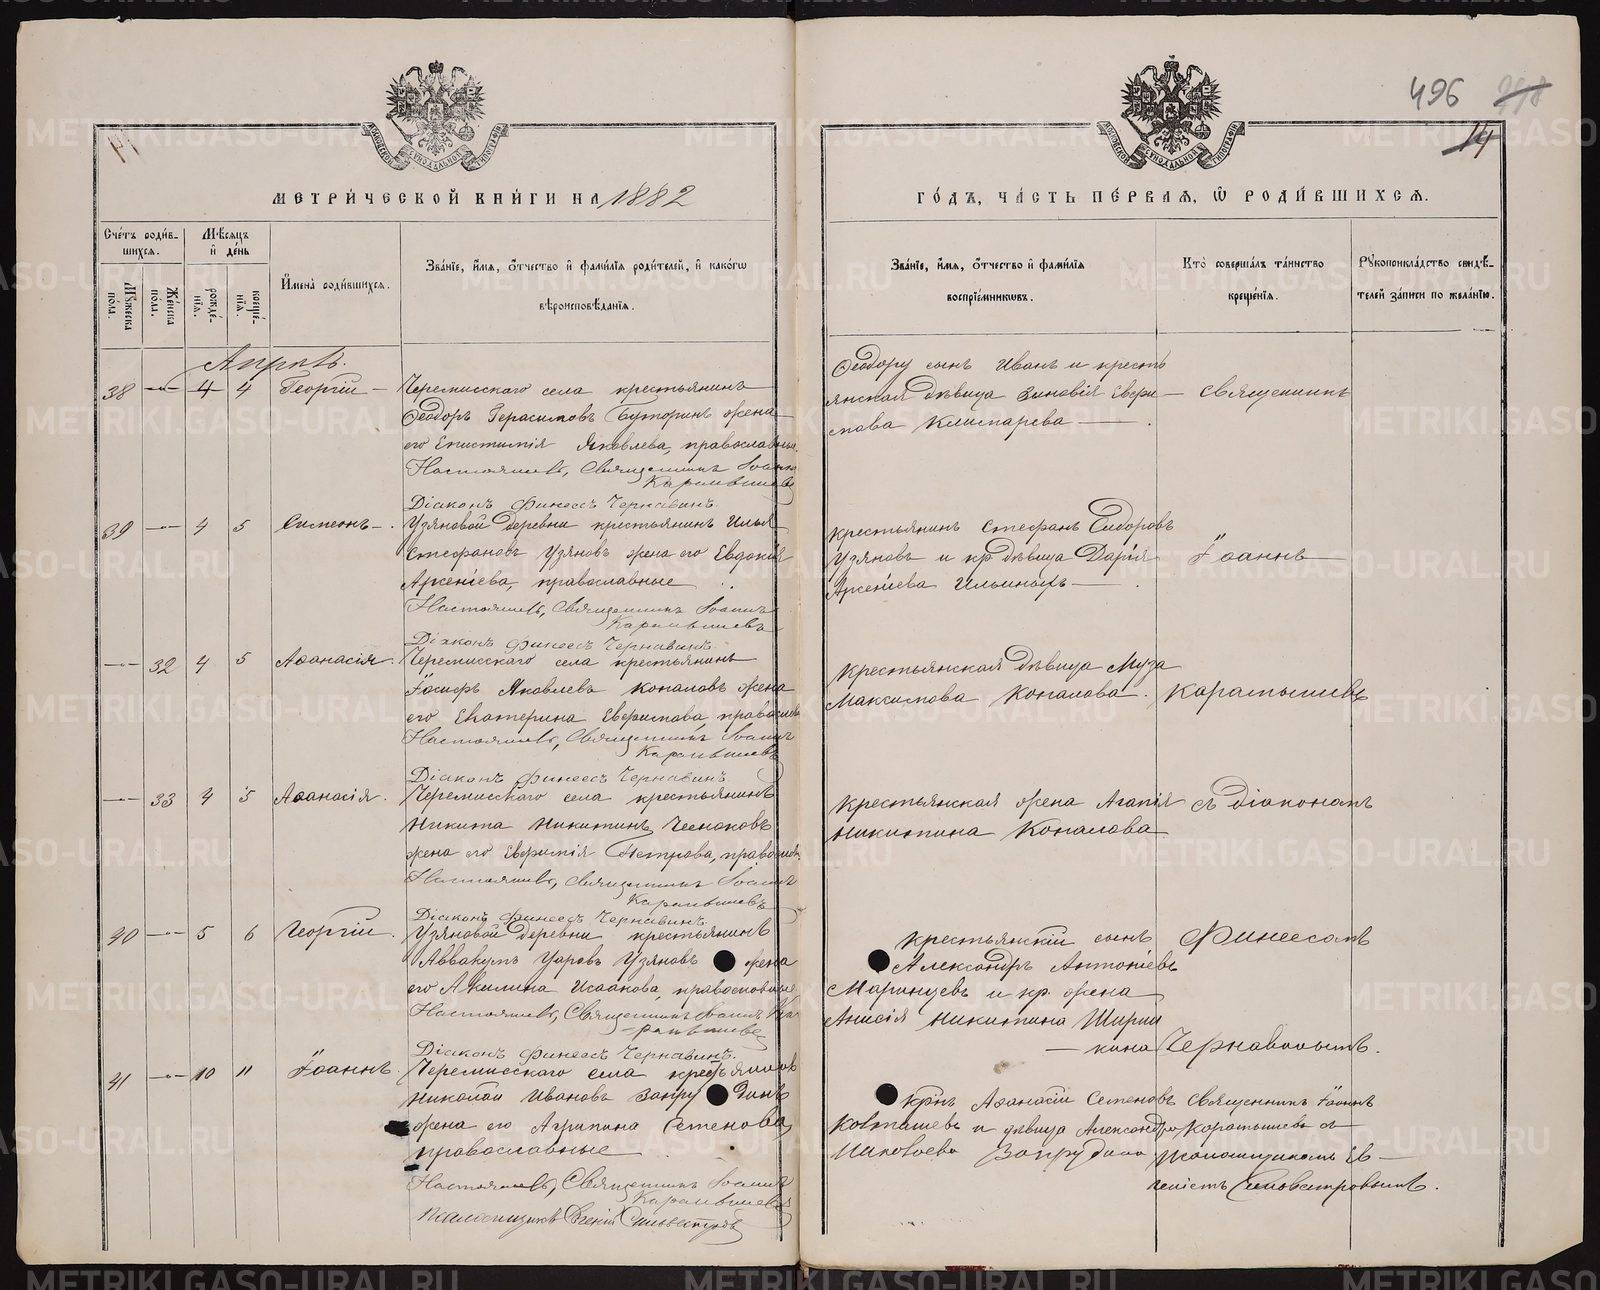 496
14
МЕТРИ́ЧЕСКОЙ КНИ́ГИ НА 1882
ГО́ДЪ, ЧА́СТЬ ПЕ́РВАЯ, Ѡ РОДИ́ВШИХСЯ.
Сче́тъ роди́вшихся.
Му́жеска по́ла.
Же́нска по́ла.
Мѣ́сяцъ и де́нь
рожде́нія.
креще́нія.
Имена̀ роди́вшихся.
Зва́ніе, и́мя, о́тчество и фами́лія роди́телей, и како́гѡ
вѣроисповѣ́данія.
Зва́ніе, и́мя, о́тчество и фами́лія
воспріе́мниковъ.
Кто̀ соверша́лъ та́инство
креще́нія.
Рꙋкоприкла́дство свидѣ́-
телей за́писи по жела́нію.
Апрѣль.
38 — 4 4 Георгій
Черемисскаго села крестьянинъ
Ѳеодоръ Герасимовъ Буторинъ жена
его Епистимія Яковлева, православные
Настоятель, Священникъ Іоаннъ
Карамышевъ
Діаконъ Финеесъ Чернавинъ.
Ѳеодору сынъ Иванъ и кресть
янская дѣвица Зиновія Евфи-
мова
Священникъ
39 — 4 5 Симеонъ
Узяновой деревни крестьянинъ Илья
Стефановъ Узяновъ жена его Евдокія
Арсеніева, православные
Настоятель, Священникъ Іоаннъ
Карамышевъ
Діаконъ Финеесъ Чернавинъ.
Крестьянинъ Стефанъ Сидоровъ
Узяновъ и кр дѣвица Дарія
Арсеніева Ильиныхъ
Іоаннъ
— 32 4 5 Аѳанасія.
Черемисскаго села крестьянинъ
Іосифъ Яковлевъ Копаловъ жена
его Екатерина Евфимова, православные
Настоятель, Священникъ Іоаннъ
Карамышевъ
Діаконъ Финеесъ Чернавинъ.
Крестьянская дѣвица Муза
Максимова Копалова.
Карамышевъ
— 33 4 5 Аѳанасія.
Черемисскаго села крестьянинъ
Никита Никитинъ Чесноковъ
жена его Евфимія Петрова, православные
Настоятель, Священникъ Іоаннъ
Карамышевъ
Діаконъ Финеесъ Чернавинъ.
Крестьянская жена Агапія
Никитина Копалова
съ діакономъ
40 — 5 6 Георгій.
Узяновой деревни крестьянинъ
Аввакумъ Уаровъ Узяновъ жена
его Акилина Исаакова, православные
Настоятель, Священникъ Іоаннъ Ка
рамышевъ
Діаконъ Финеесъ Чернавинъ.
Крестьянскій сынъ
Александръ Антоніевъ
и кр. жена
Анисія Никитина Ширин
кина
Финеесомъ
Чернавинымъ.
41 — 10 11 Іоаннъ.
Черемисскаго села крестьянинъ
Николай Ивановъ Запрудинъ
жена его Агрипина Семенова
православные
Настоятель, Священникъ Іоаннъ
Карамышевъ
Псаломщикъ Евгеній Сильвестровъ
крнъ Аѳанасій Семеновъ
Колташевъ и дѣвица Александра
Николаева Запрудина
Священникъ Іоаннъ
Карамышевъ съ
Псаломщикомъ Ев-
геніемъ Сильвестровымъ.
METRIKI.GASO-URAL.RU